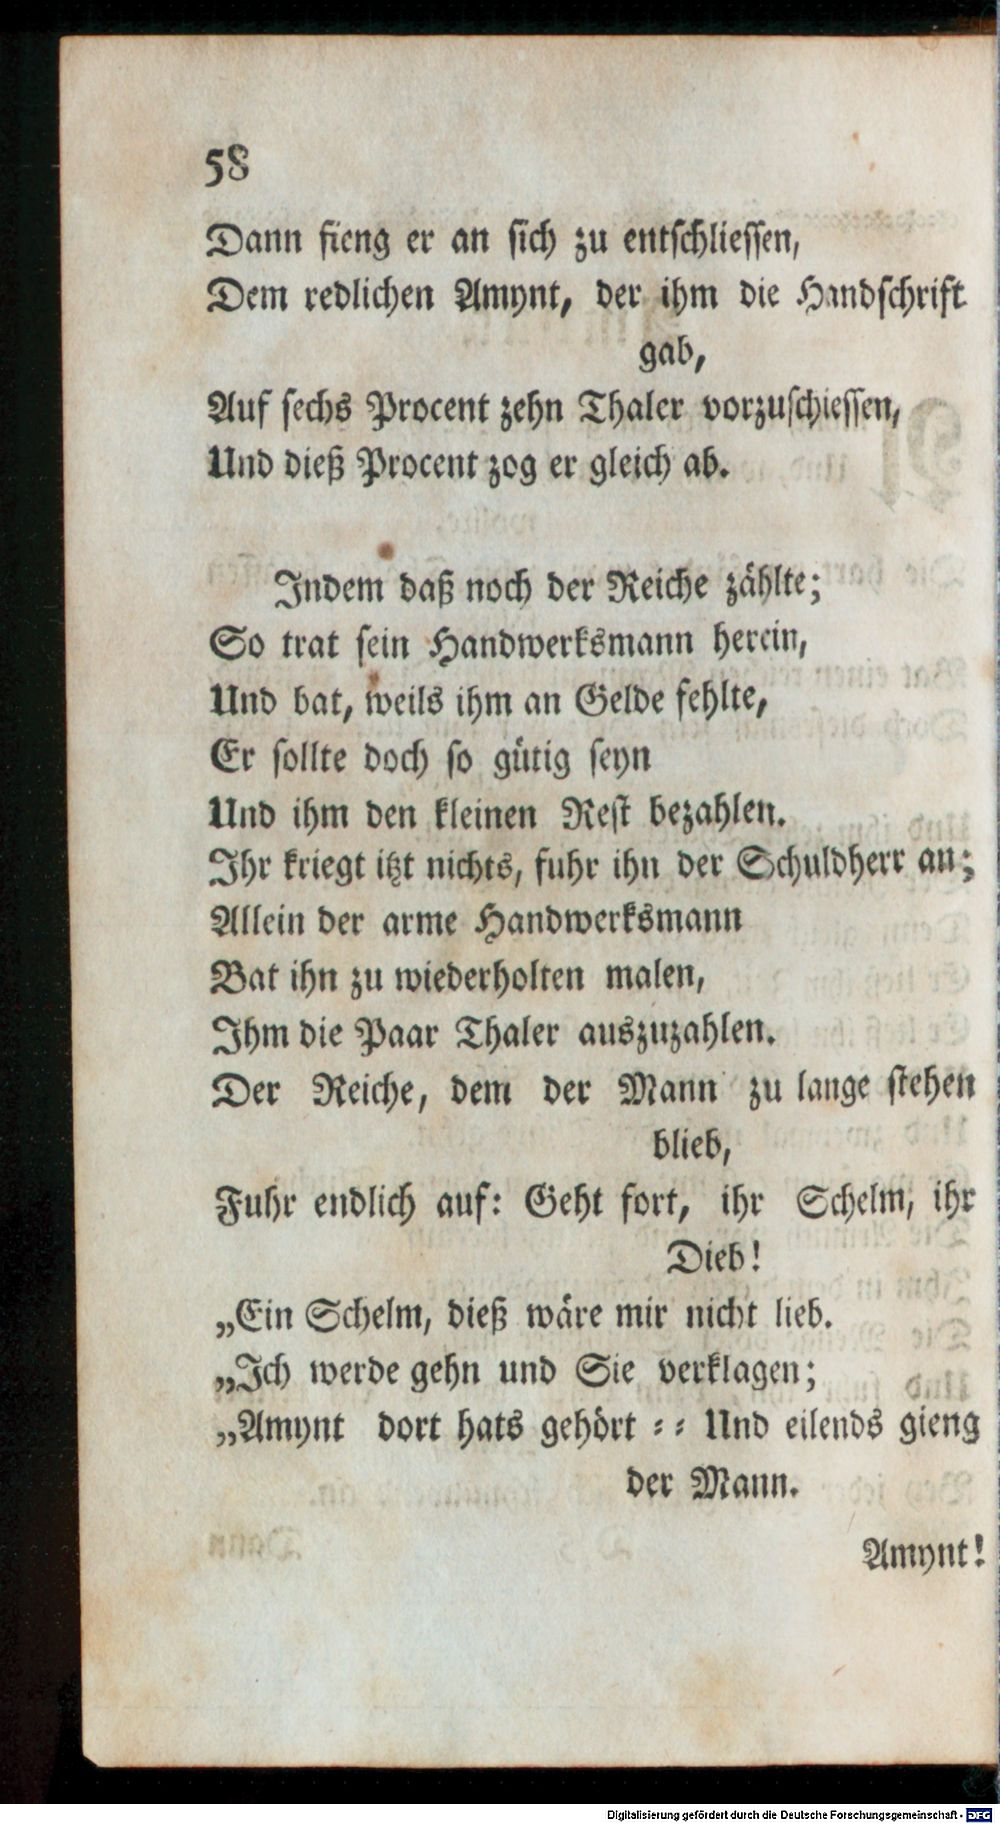 58
Dann fieng er an sich zu entschliessen,
Dem redlichen Amynt, der ihm die Handschrift
gab,
Auf sechs Procent zehn Thaler vorzuschiessen,
Und dieß Procent zog er gleich ab.
Indem daß noch der Reiche zählte;
So trat sein Handwerksmann herein,
Und bat, weils ihm an Gelde fehlte,
Er sollte doch so gütig seyn
Und ihm den kleinen Rest bezahlen.
Ihr kriegt itzt nichts, fuhr ihn der Schuldherr an;
Allein der arme Handwerksmann
Bat ihn zu wiederholten malen,
Ihm die Paar Thaler auszuzahlen.
Der Reiche, dem der Mann zu lange stehen
blieb,
Fuhr endlich auf: Geht fort, ihr Schelm, ihr
Dieb!
„Ein Schelm, dieß wäre mir nicht lieb.
„Ich werde gehn und Sie verklagen;
„Amynt dort hats gehört ⸗ ⸗ Und eilends gieng
der Mann.
Amynt!
Digitalisierung gefördert durch die Deutsche Forschungsgemeinschaft - DFG